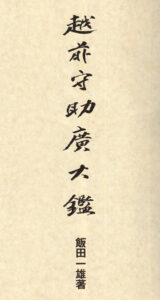 越前守助廣大鑑
飯田一雄著